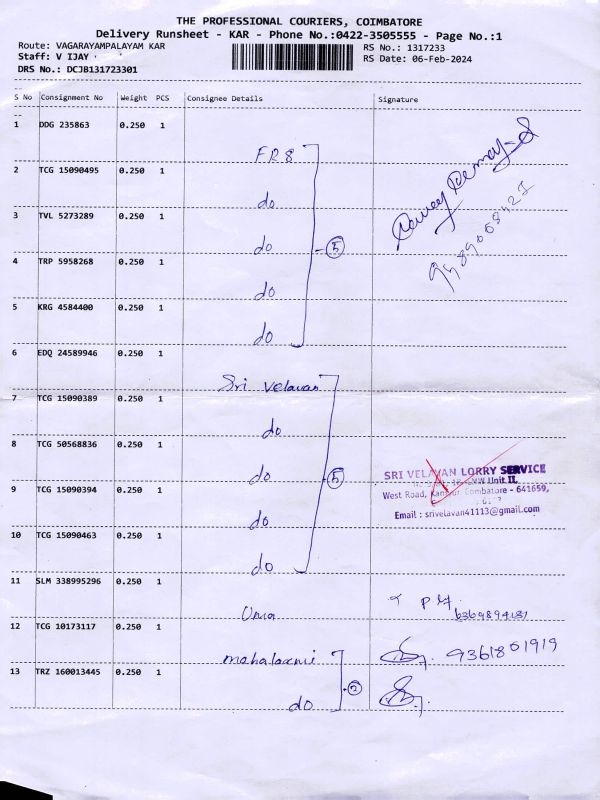 THE PROFESSIONAL COURIERS, COIMBATORE
Delivery Runsheet - KAR - Phone No.:0422-3505555 - Page No.:1
Route: VAGARAYAMPALAYAM KAR
RS No.: 1317233
Staff: V IJAY
RS Date: 06-Feb-2024
DRS No.: DCJB131723301
S No Consignment No Weight PCS Consignee Details Signature
1 DDG 235863 0.250 1
FR8
2 TCG 15090495 0.250 1
do
3 TVL 5273289 0.250 1
do
5
4 TRP 5958268 0.250 1
do
5 KRG 4584400 0.250 1
do
6 EDQ 24589946 0.250 1
Sri Velavan
7 TCG 15090389 0.250 1
do
8 TCG 50568836 0.250 1
do
5
SRI VELAVAN LORRY SERVICE
Unit II,
9 TCG 15090394 0.250 1
West Road, Coimbatore - 641659,
Email : srivelavan41113@gmail.com
do
10 TCG 15090463 0.250 1
do
11 SLM 338995296 0.250 1
Uma
6369894181
12 TCG 10173117 0.250 1
mahalaxmi
9361801919
13 TRZ 160013445 0.250 1
2
do